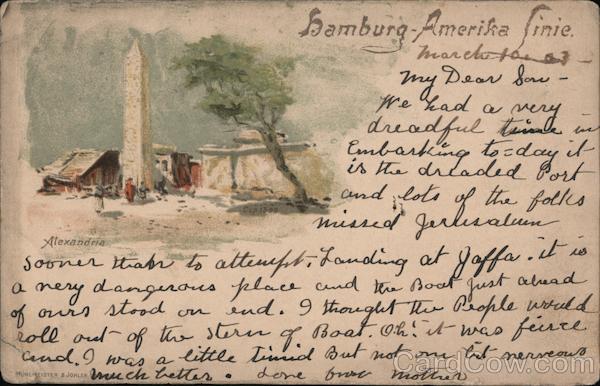 Hamburg-Amerika Linie.
March 10 - 03 -
My Dear Son -
We had a very
dreadful time in
Embarking to=day it
is the dreaded Port
and lots of the folks
missed Jerusalum
Alexandria
sooner than to attempt. Landing at Jaffa. it is
a very dangerous place and the Boat just ahead
of ours stood on end. I thought the People would
roll out of the stern of Boat. Oh! it was fierce
and. I was a little timid But not on bit nerveous
MÜHLMEISTER & JOHLER
much better. Love Mother
CardCow.com